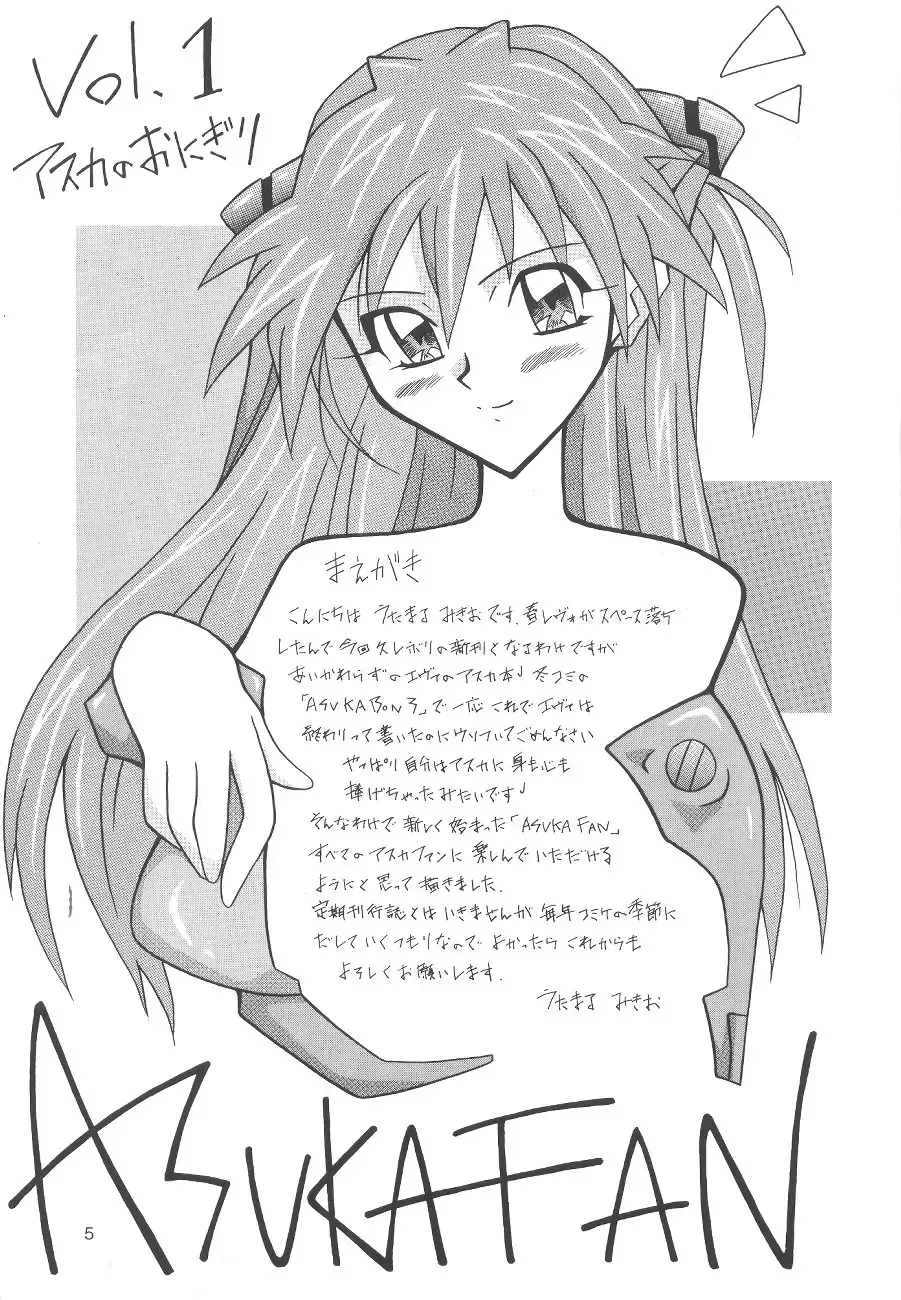 Vol.1
アスカのおにぎり
まえがき
こんにちは うたまる みきおです. 春レヴォがスペース落ケ
したんで 今回 久しぶりの新刊となるわけですが
あいかわらずのエヴァのアスカ本♩ 冬コミの
「ASUKABON3」で一応 これでエヴァは
終わりって書いたのにウソついてごめんなさい
やっぱり自分はアスカに身も心も
捧げちゃったみたいです♩
そんなわけで新しく始まった「ASUKA FAN」
すべてのアスカファンに楽しんでいただける
ようにと思って描きました.
定期刊行誌とはいきませんが 毎年コミケの季節に
だしていくつもりなので よかったら これからも
よろしくお願いします.
うたまる みきお
ASUKA FAN
5